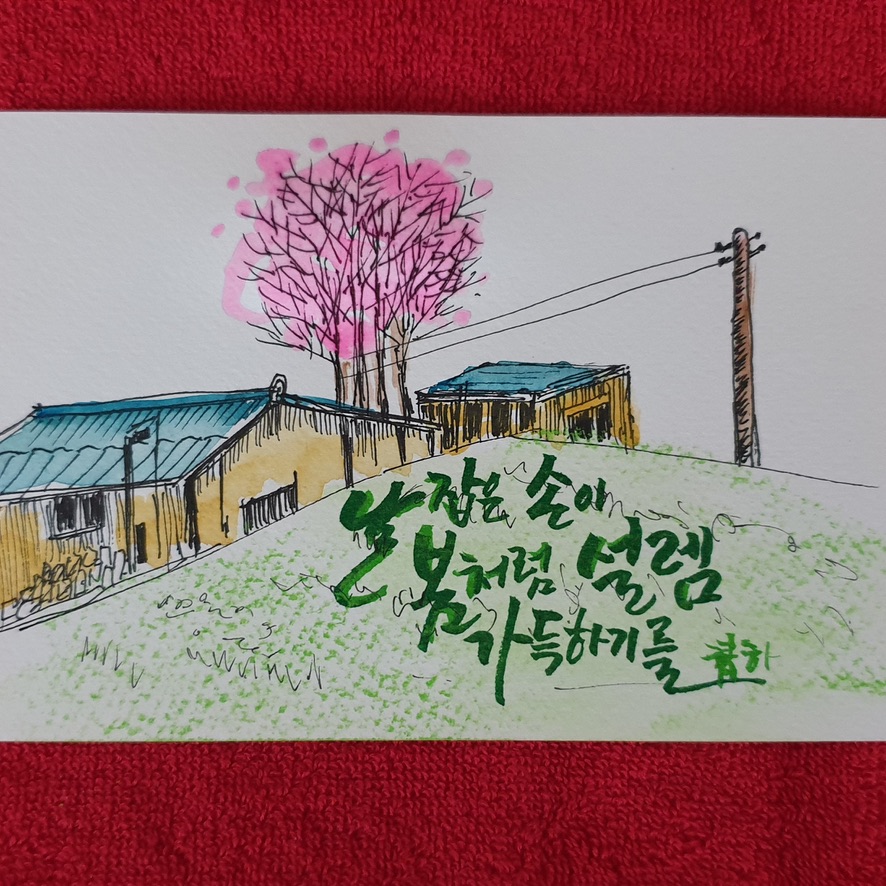 맞잡은 손이
봄처럼 설렘
가득하기를